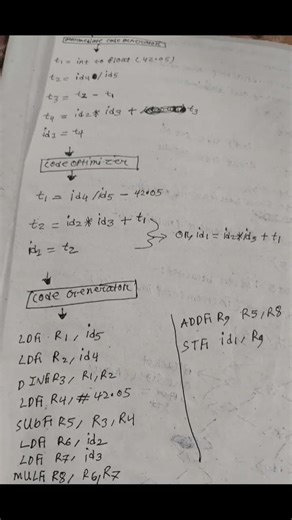 Intermediate code Generator
t1 = int to float (42.05)
t2 = id4 / id5
t3 = t2 - t1
t4 = id2 * id3 + t3
id1 = t4
Code optimizer
t1 = id4 / id5 - 42.05
t2 = id2 * id3 + t1
id1 = t2
OR, id1 = id2 * id3 + t1
Code Generator
LDF R1, id5
LDF R2, id4
DIVF R3, R1, R2
LDF R4, # 42.05
SUBF R5, R3, R4
LDF R6, id2
LDF R7, id3
MULF R8, R6, R7
ADDF R9 R5, R8
STF id1, R9